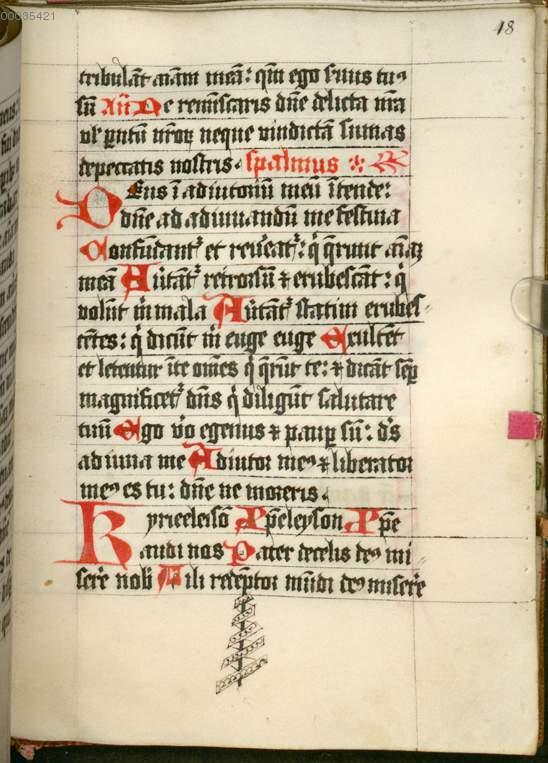 00035421
48
tribulāt aīam meā: qm̄ ego s̄uus tuꝯ
sū Añ De remīscaris dn̄e delicta nr̄a
vl' pn̄tū nr̄oꝝ neque vindictā sumas
depeccatis nostris. spalmus
DEus ī adiutoriū meū ītende:
dn̄e ad adiuuandū me festina
Confūdant' et reu̾eāt': q̇ q̄runt aīaꝫ
meā Au̾tāt' retrorsū ⁊ erubescāt: q̇
volūt m̄ mala Au̾tāt' statim erubes-
cētes: q̇ dicūt m̄ euge euge Exultēt
et letentur īte om̄es q̇ q̄rūt te: ⁊ dicāt semꝑ
magnificet' dn̄s q̇ diligūt salutare
tuū Ego v̊o egenus ⁊ pauꝑ sū: d's
adiuua me Adiutor meꝯ ⁊ liberator
meꝯ es tu: dn̄e ne moreris.
Kyrieeleisō Xp̄eleyson Xp̄e
audi nos Pater decelis deꝯ mi
serē nob̄ Fili redēptor mūdi deꝯ miserē